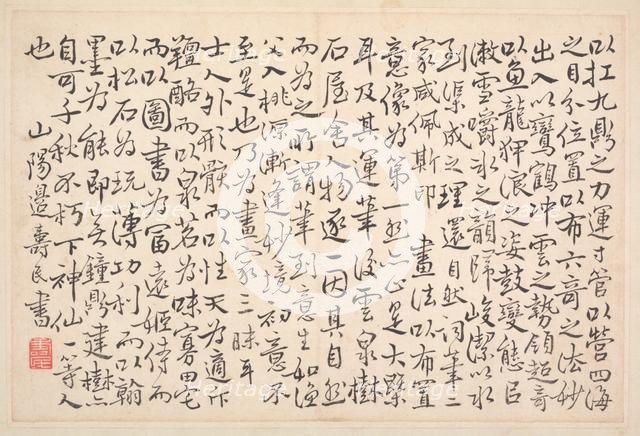 以扛九鼎之力運寸管以營四海
之目分位置以布六奇之法妙
出入以鸞鶴沖雲之勢領超奇
以魚龍狎浪之姿鼓變態臣
漱雪嚼冰之韻歸峻潔以水
到渠成之理還自然詞畫二
家咸佩斯印 畫法以布置
意像為第一然亦只是大槩
耳及其運筆後雲泉樹
石屋舍人物逐一因其自然
而為之所謂筆到意生如漁
父入桃源漸逢妙境初意不
至是也乃為畫家三昧耳
士人外形骸而以性天為適下
羶酪而以泉茗為味寡田宅
而以圖書為富遠姬侍而
以松石為玩薄功利而以翰
墨為能即無鐘鼎建樹亦
自可千秋不朽下神仙一等人
也 山陽邊壽民書
壽民
Heritage
Heritage
Heritage